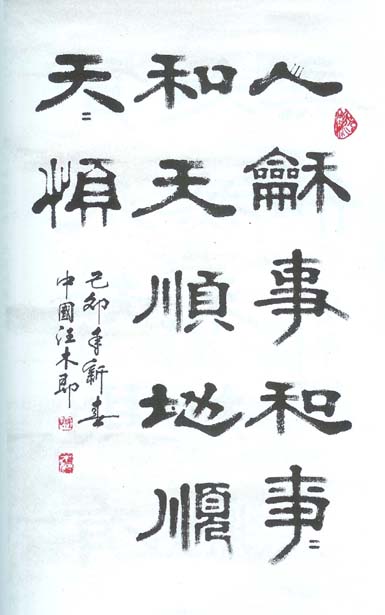 人龢事和事〻
和天順地順
天〻順
己卯年新喜
中國汪木